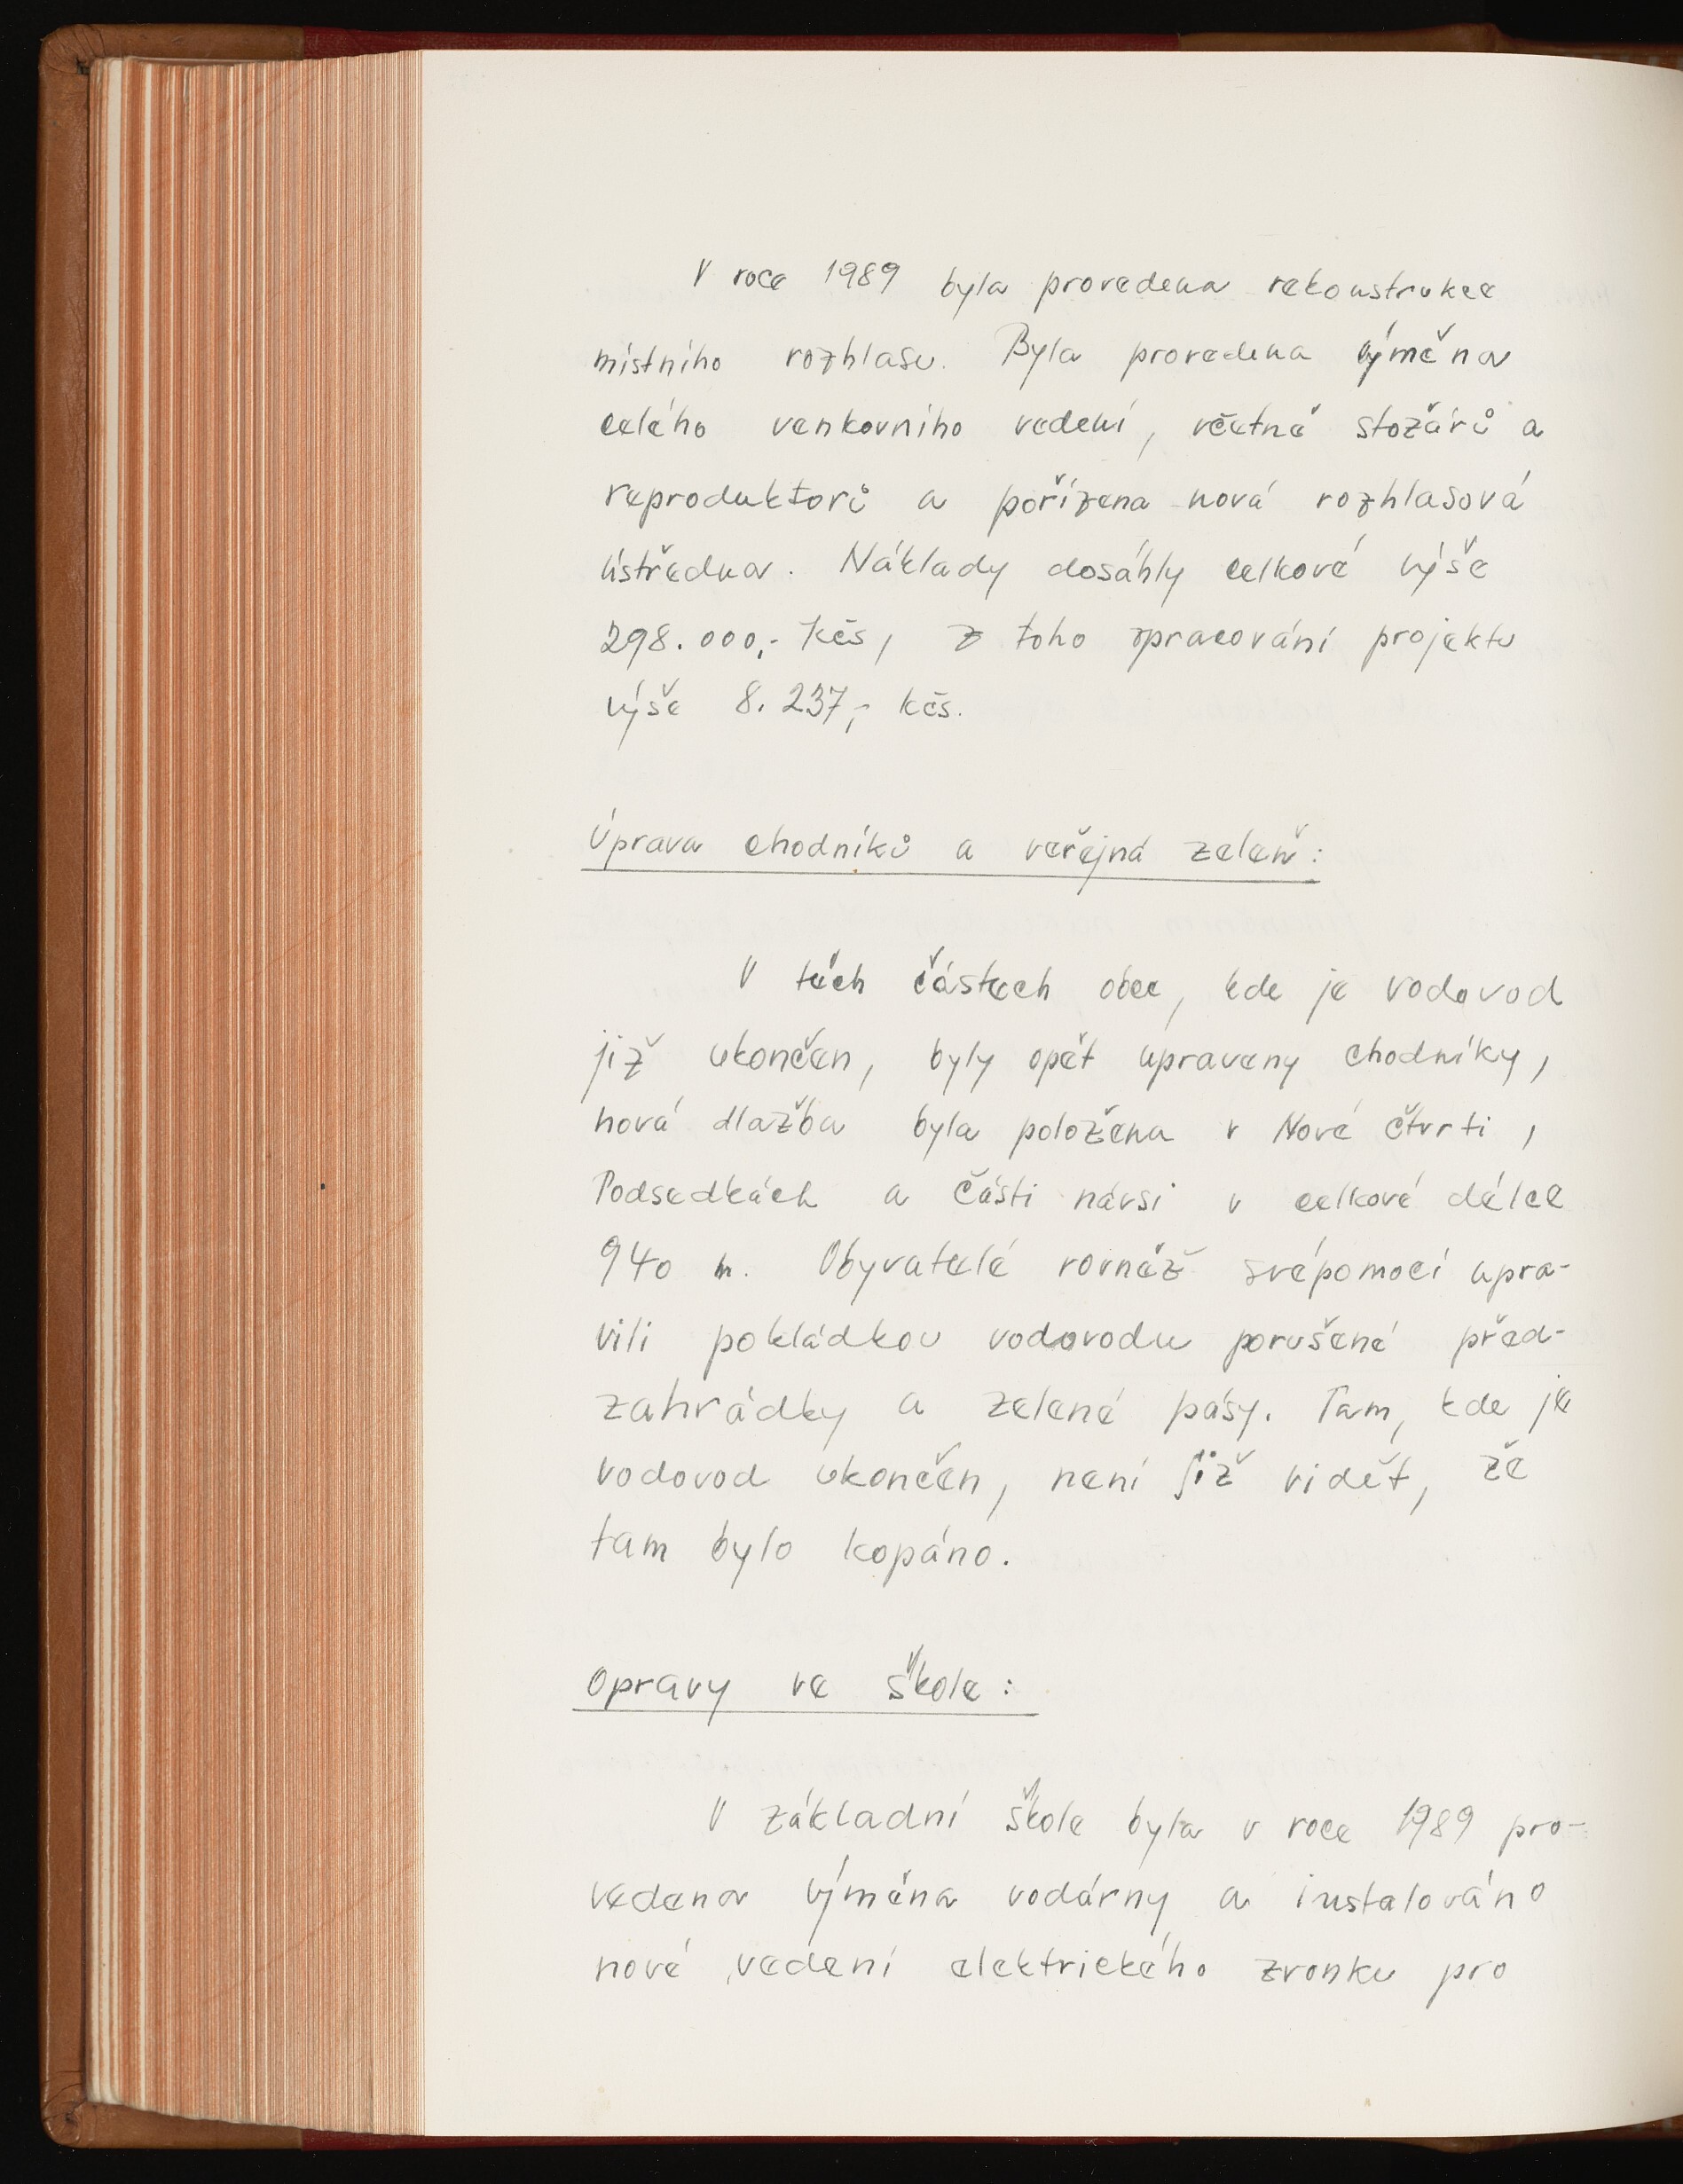 V roce 1989 byla provedena rekonstrukce
místního rozhlasu. Byla provedena výměna
celého venkovního vedení, včetně stožárů a
reproduktorů a pořízena nová rozhlasová
ústředna. Náklady dosáhly celkové výše
298.000,- Kčs, z toho zpracování projektu
výše 8.237,- kčs.
Úprava chodníků a veřejná zeleň:
V těch částech obce, kde je vodovod
již ukončen, byly opět upraveny chodníky,
nová dlažba byla položena v Nové čtvrti,
Podsedkách a části návsi v celkové délce
940 m. Obyvatelé rovněž svépomocí upra-
vili pokládkou vodovodu porušené před-
zahrádky a zelené pásy. Tam, kde je
vodovod ukončen, není již vidět, že
tam bylo kopáno.
Opravy ve škole:
V základní škole byla v roce 1989 pro-
vedena výměna vodárny a instalováno
nové vedení elektrického zvonku pro